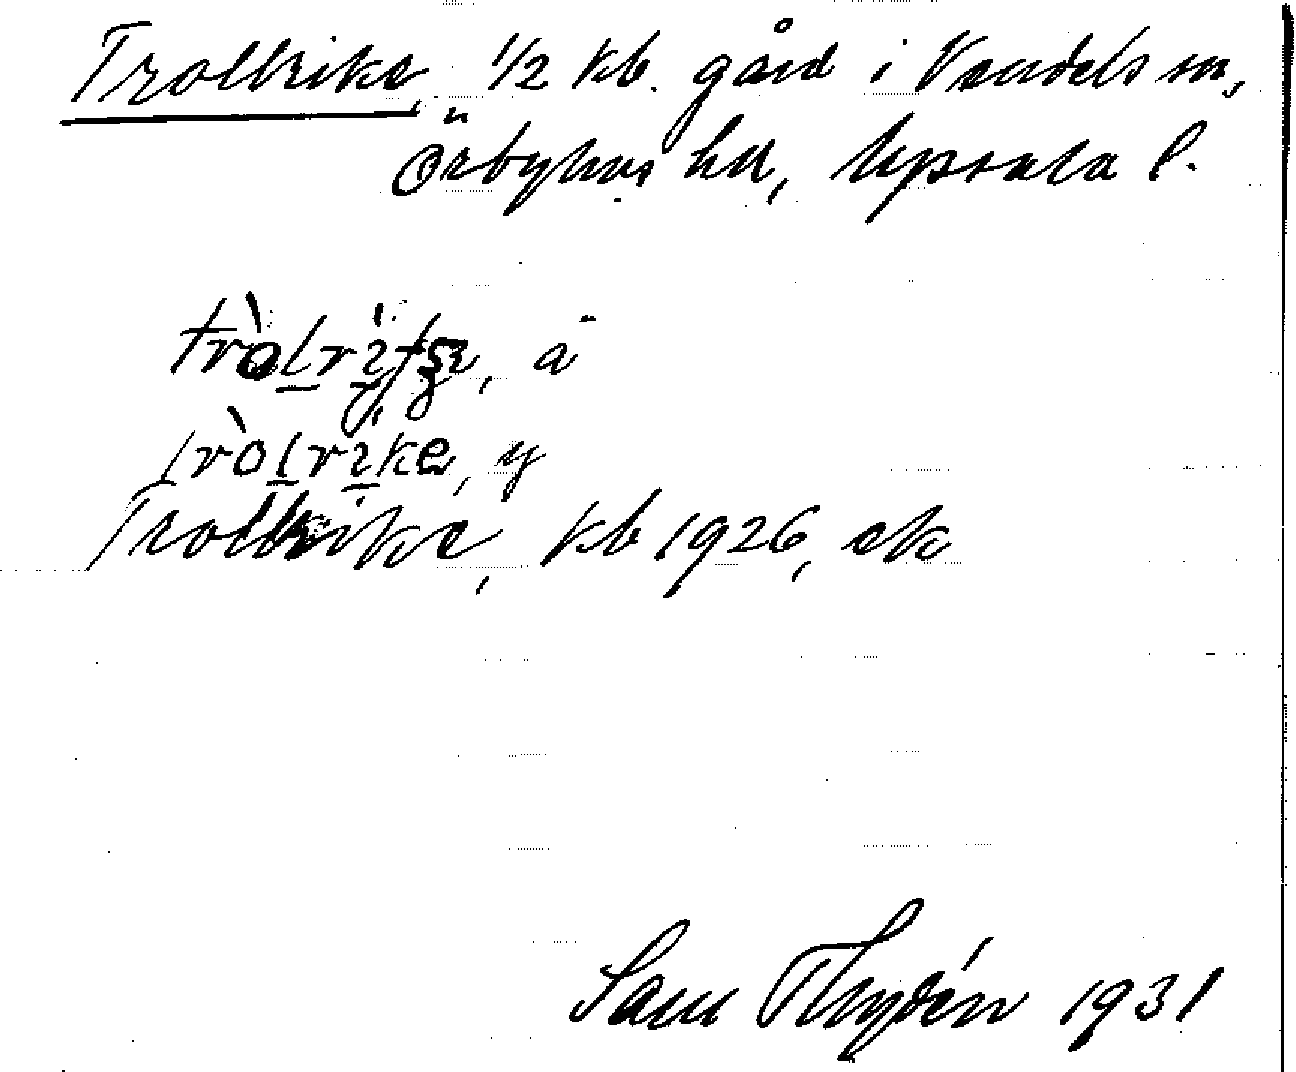 Trollrike, 1/2 kb. gård i Vendels sn,
Örbyhus hd, Upsala l.
tròlrìtʂɛ, ä
tròlrìke, y
Trollrike, kb 1926, ek
Sam Thydén 1931